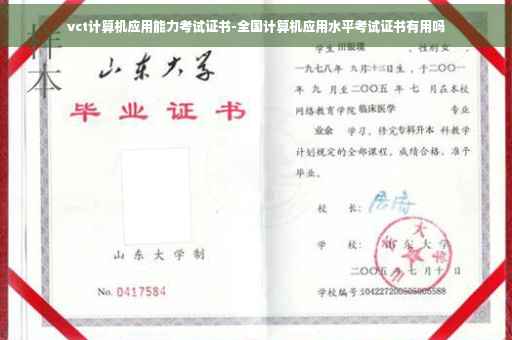 vct计算机应用能力考试证书-全国计算机应用水平考试证书有用吗
样本
山东大学
毕业证书
山东大学制
No. 0417584
学生
性别女，
一九七八年 九月十三日生，于二〇〇一
年 九 月至二〇〇五 年 七 月在本校
网络教育学院 临床医学 专业
业余 学习，修完专科升本 科教学
计划规定的全部课程，成绩合格，准予
毕业。
校 长：
学 校：山东大学
二〇〇五 年 七 月 十 日
学校编号：104227200505005588